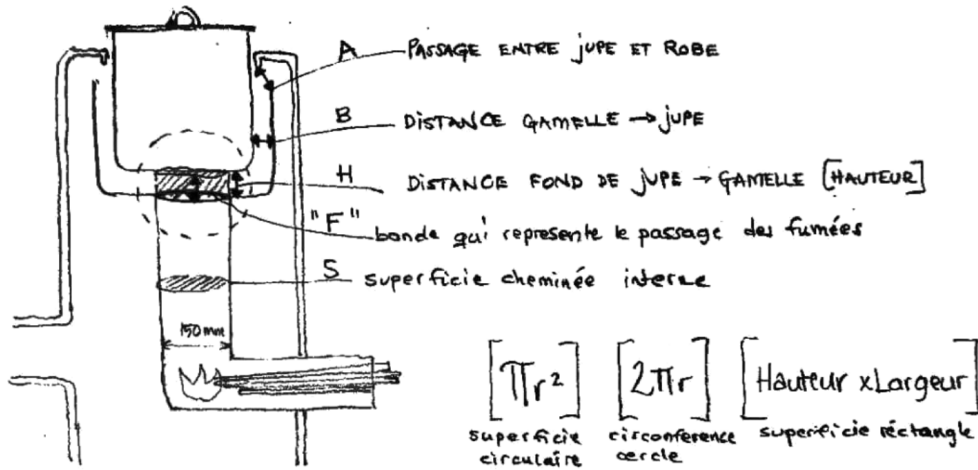 A PASSAGE ENTRE JUPE ET ROBE
B DISTANCE GAMELLE → JUPE
H DISTANCE FOND DE JUPE → GAMELLE [HAUTEUR]
"F" bande qui represente le passage des fumées
S superficie cheminée interne
150 mm
[πr²] [2πr] [Hauteur x Largeur]
superficie circulaire
circonference cercle
superficie réctangle